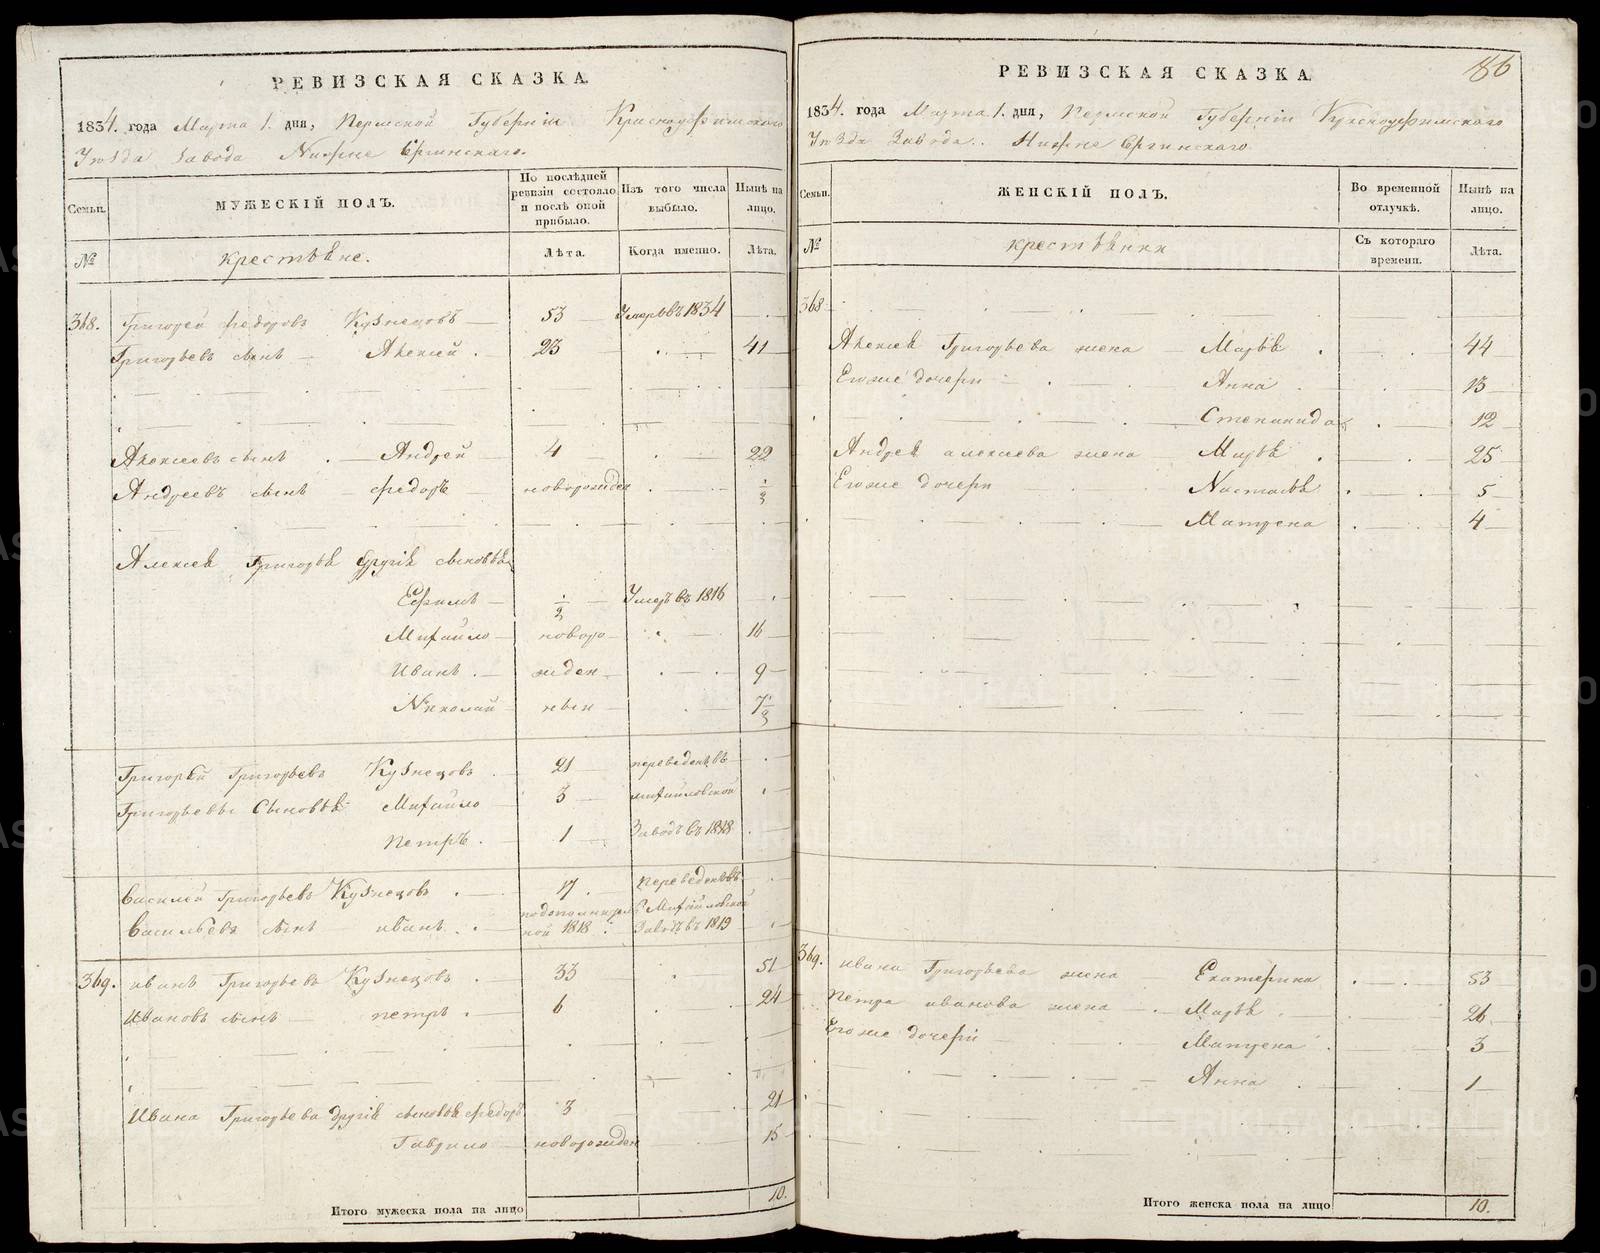 РЕВИЗСКАЯ СКАЗКА.
1834. года Марта 1. дня, Пермской Губерніи Красноуфимского
Уѣзда Завода Нижне Сергинскаго.
Семьи.
МУЖЕСКІЙ ПОЛЪ.
По послѣдней ревизіи состояло и послѣ оной прибыло.
Изъ того числа выбыло.
Нынѣ на лицо.
№
крестьяне.
Лѣта.
Когда именно.
Лѣта.
368. Григорей Федоровъ Кузнецовъ 53 Умеръ въ 1834
Григорьевъ сынъ Алексей 23 41
Алексеевъ сынъ Андрей 4 22
Андреевъ сынъ Федоръ новорожден
Алексея Григорьева другія сыновья
Ефимъ 1/2 Умеръ въ 1816
Михайло новоро 16
Иванъ жден 9
Николай ныи
Григорей Григорьевъ Кузнецовъ 21 переведенъ въ
Григорьевы Сыновья Михайло 3 михайловской
Петръ 1 Заводъ въ 1818
Василей Григорьевъ Кузнецовъ 17 переведенъ въ
Михайловской
Васильевъ сынъ иванъ 1818 Заводъ въ 1819
369. иванъ Григорьевъ Кузнецовъ 33 51
Ивановъ сынъ петръ 6 24
Ивана Григорьева другія сыновья федоръ 3 21
Гаврило новорожден 15
Итого мужеска пола на лицо 10.
186
РЕВИЗСКАЯ СКАЗКА.
1834. года Марта 1. дня, Пермской Губерніи Красноуфимского
Уѣзда Завода Нижне Сергинскаго
Семьи.
ЖЕНСКІЙ ПОЛЪ.
Во временной отлучкѣ.
Нынѣ на лицо.
№
крестьянки
Съ котораго времени.
Лѣта.
368
Алексея Григорьева жена Марья 44
Егоже дочери Анна 13
Степанида 12
Андрея алексеева жена Марья 25
Егоже дочери Настасья 5
Матрена 4
369. ивана Григорьева жена Екатерина 53
петра иванова жена Марья 26
Егоже дочери Матрена 3
Анна 1
Итого женска пола на лицо 10.